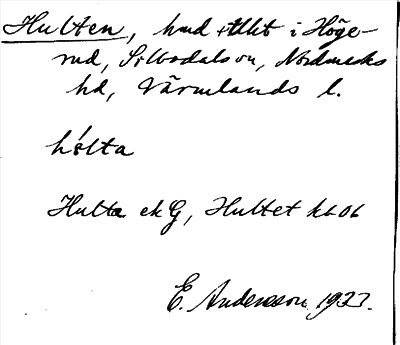 Hulten, hmd o tlht i Höge-
rud, Silbodals sn, Nordmarks
hd, Värmlands l.
hólta
Hulta ek G, Hultet kb 06
E. Andersson 1923.